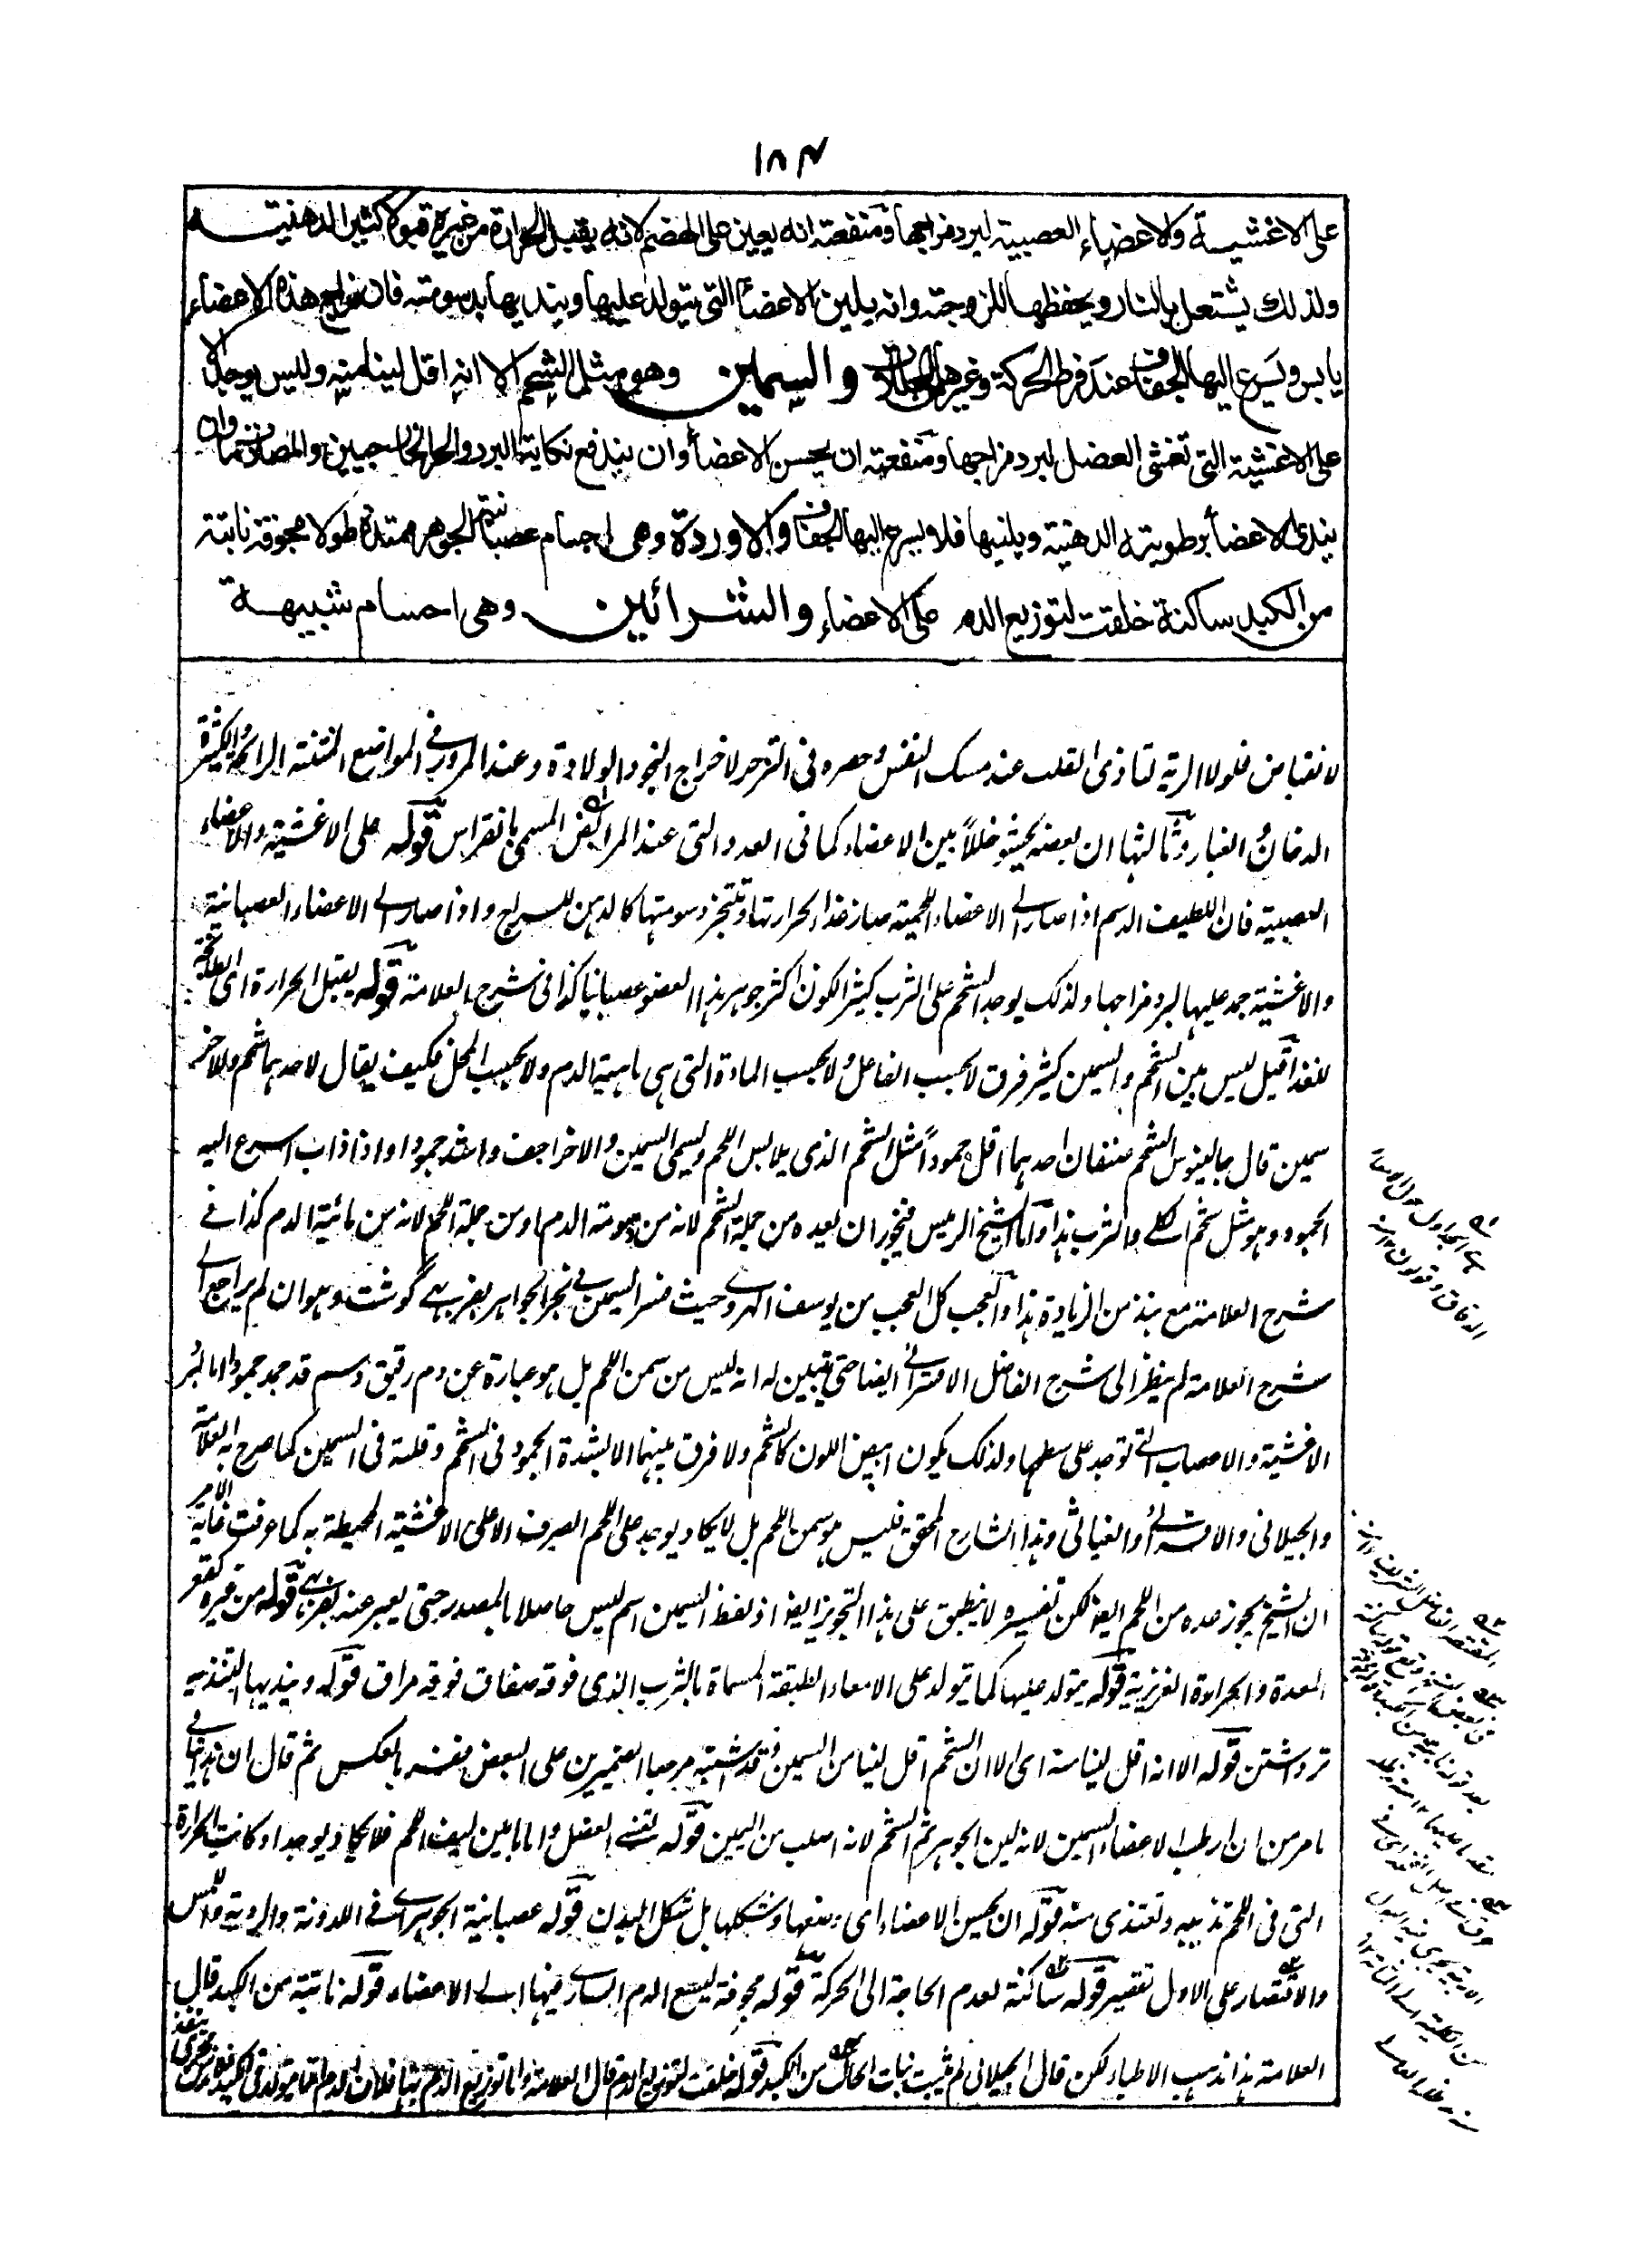 ١٨٤
على الاغشية والاعضاء العصبية لبرد مزاجها ومنفعته انه يعين على الهضم لانه يقبل الحرارة من غيره قبولا كثيرا لدهنيته
ولذلك يشتعل بالنار ويحفظها للزوجته وانه يلين الاعضاء التى يتولد عليها وينديها بدسومته فان مزاج هذه الاعضاء
يابس ويسرع اليها الجفاف عند فرط الحركة وغيرها والسمين وهو مثل الشحم الا انه اقل لينا منه وليس يوجد الا
على الاغشية التى تغشى العضل لبرد مزاجها ومنفعته ان يحسن الاعضاء وان يندفع نكاية البرد والحر الخارجيين والمصادمات وان
يندى الاعضاء برطوبته الدهنية ويلينها فلا يسرع اليها الجفاف والاوردة وهى اجسام عصبانية الجوهر ممتدة طولا مجوفة نابتة
من الكبد ساكنة خلقت لتوزيع الدم على الاعضاء والشرائين وهى اجسام شبيهة
لانقباض فلولا الرية لتاذى القلب عند مسك النفس وحصره فى التزحر لاخراج النجو والولادة وعند المرور فى المواضع المنتنة الرائحة والكثيرة
الدخان والغبار وثالثها ان بعضه يحشو خللا بين الاعضاء كما فى الغدد التى عند المرابض المسمى بانقراس قوله على الاغشية والاعضاء
العصبية فان اللطيف الدسم اذا صار الى الاعضاء اللحمية صار غذاء لحرارتها وتتبخر دسومتها كالدهن للسراج واذا صار الى الاعضاء العصبانية
والاغشية جمد عليها لبرد مزاجها ولذلك يوجد الشحم على الثرب كثيرا لكون اكثر جوهر هذا العضو عصبانيا كذا فى شرح العلامة قوله يقبل الحرارة اى
للغذا قيل ليس بين الشحم والسمين كثير فرق لا بحسب الفاعل ولا بحسب المادة التى هى مائية الدم ولا بحسب المحل فكيف يقال لاحدهما شحم وللاخر
سمين قال جالينوس الشحم صنفان احدهما اقل جمودا مثل الشحم الذى يلابس اللحم ويسمى السمين والاخر اجف واشد جمودا واذا ذاب اسرع اليه
الجمود وهو مثل شحم الكلى والثرب هذا واما الشيخ الرئيس فيجوز ان يعده من جملة الشحم لانه من دسومة الدم او من جملة اللحم لانه من مائية الدم كذا فى
شرح العلامة مع نبذ من الزيادة هذا والعجب كل العجب من يوسف الهروى حيث فسر السمين فى بحر الجواهر بفربهى گوشت وهو ان لم يراجع الى
شرح العلامة لم ينظر الى شرح الفاضل الاقسرائى ايضا حتى يتبين له انه ليس من سمن اللحم بل هو عبارة عن دم رقيق دسم قد جمد جمودا ما لبرد
الاغشية والاعصاب التى توجد على سطحها ولذلك يكون ابيض اللون كالشحم ولا فرق بينهما الا بشدة الجمود فى الشحم وقلته فى السمين كما صرح به العلامة
والجيلانى والاقسرائى والغياثى وهذا الشارح المحقق فليس هو سمن اللحم بل لا يكاد يوجد على اللحم الصرف الا على الاغشية المحيطة به كما عرفت غاية الامر
ان الشيخ يجوز عده من اللحم ايضا لكن تفسيره لا ينطبق على هذا التجويز ايضا اذ لفظ السمين اسم ليس حاصلا بالمصدر حتى يعبر عنه بفربهى قوله من غيره كقعر
المعدة والحرارة الغريزية قوله يتولد عليها كما يتولد على الامعاء الطبقة المسماة بالثرب الذى فوقه صفاق فوقه مراق قوله وينديها التندية
تر داشتن قوله الا انه اقل لينا منه اى الا ان الشحم اقل لينا من السمين وقد اشتبه مرجعا الضميرين على البعض ففسره بالعكس ثم قال ان هذا ينافى
ما مر من ان ارطب الاعضاء السمين لانه لين الجوهر ثم الشحم لانه اصلب من السمين قوله تغشى العضل واما ما بين ليف اللحم فلا يكاد يوجد اذ كانت الحرارة
التى فى اللحم تذيبه وتغتذى منه قوله ان يحسن الاعضاء اى وضعها وشكلها بل شكل البدن قوله عصبانية الجوهر اى فى اللدونة والرؤية واللمس
والاقتصار على الاول تقصير قوله ساكنة لعدم الحاجة الى الحركة قوله مجوفة ليسع الدم السارى فيها الى الاعضاء قوله نابتة من الكبد قال
العلامة هذا مذهب الاطباء لكن قال الجيلانى لم يثبت نبات من الكبد قوله خلقت لتوزيع الدم قال العلامة واما توزيع الدم بها فلان الدم انما يتولد فى الكبد